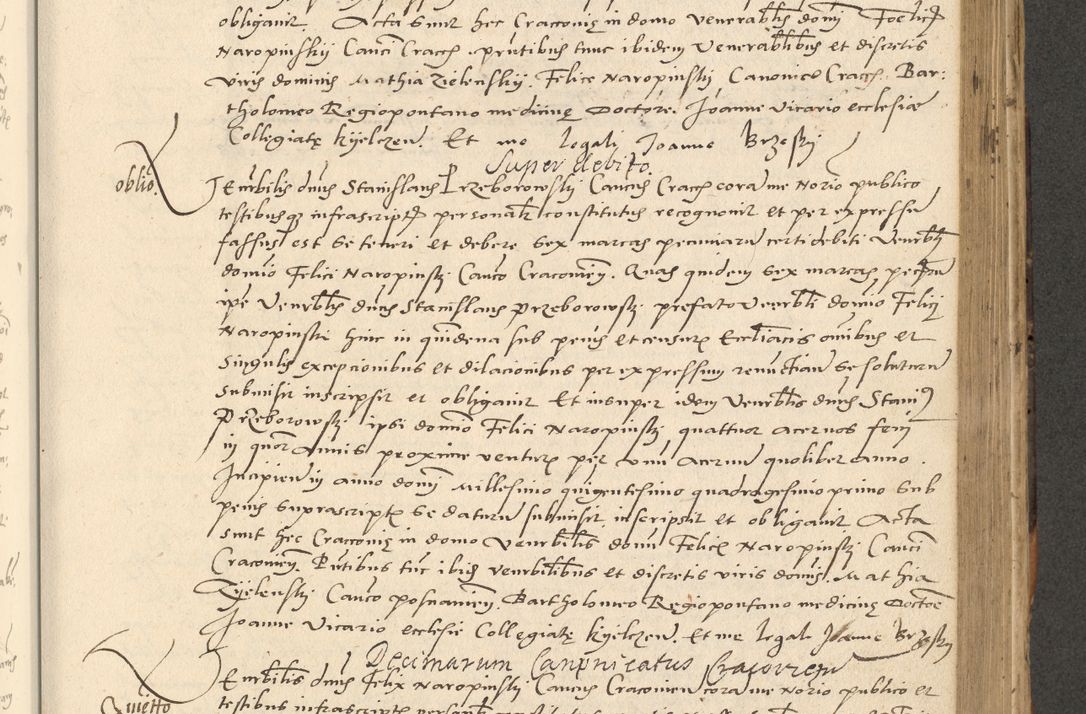 obliganit. Acta sunt hec Cracovię in domo venerablis domi Foelicis
Naropinskij Canci Cracoven. pntibus tunc ibidem Venerablibus et discretis
viris dominis Mathia Zielenskij. Felice Naropinskj Canonico Cracoven. Bar:
tholomeo Regiopontano medicinę Doctore. Joanne vicario ecclesiae
Collegiatę Kyelczen. Et me legali Joanne Brzeskj
Super debito.
oblio.
Venerbilis dnus Stanislaus Przeborowskj Cancus Cracoven coram me Notrio publico
testibusque infrascriptis personalr constitutus recognonit et per expresse
fassus est se teneri et debere sex marcas pecuniaru certi debiti Venerbli
domino Felici Naropinskj Canco Cracovien. Quas quidem sex marcas pecun
ipe Venerblis dnus Stanislaus Przeborowskj prefato Venerbli domino Felici
Naropinskj hinc in quidena sub penis et censuris Eccliacis omibus et
singulis excepcionibus et dilacionibus per expressum renunctian se soluturu
submisit inscripsit et obliganit Et insuper idem Venerblis dnus Stani
Przeborowskj ipsi domino Felici Naropinskj quattuor acernos feni
in quor annis proxime venturis per unu acernu quolibet anno
Incipien in anno domi Millesimo quigentesimo quadragesimo primo sub
penis suprascriptis se daturu submisit inscripsit et obliganit Acta
sunt hec Cracovię in domo Venerbilis domi Felicis Naropinskj Canci
Cracovien. Pntibus tuc ibid venerbilibus et discretis viris domis Mathia
Zyelenskj Canco posnanien. Bartholomeo Regiopontano medicinę Doctoe
Joanne vicario ecclesie Collegiatę Kyelczen. Et me legali Joanne Brzeskj
Decimarum Canonicatus Cracovien
Quietto
Venerbilis dnus Felix Naropinskj Cancus Cracovien coram me Notrio publico et
testibus infrascriptis